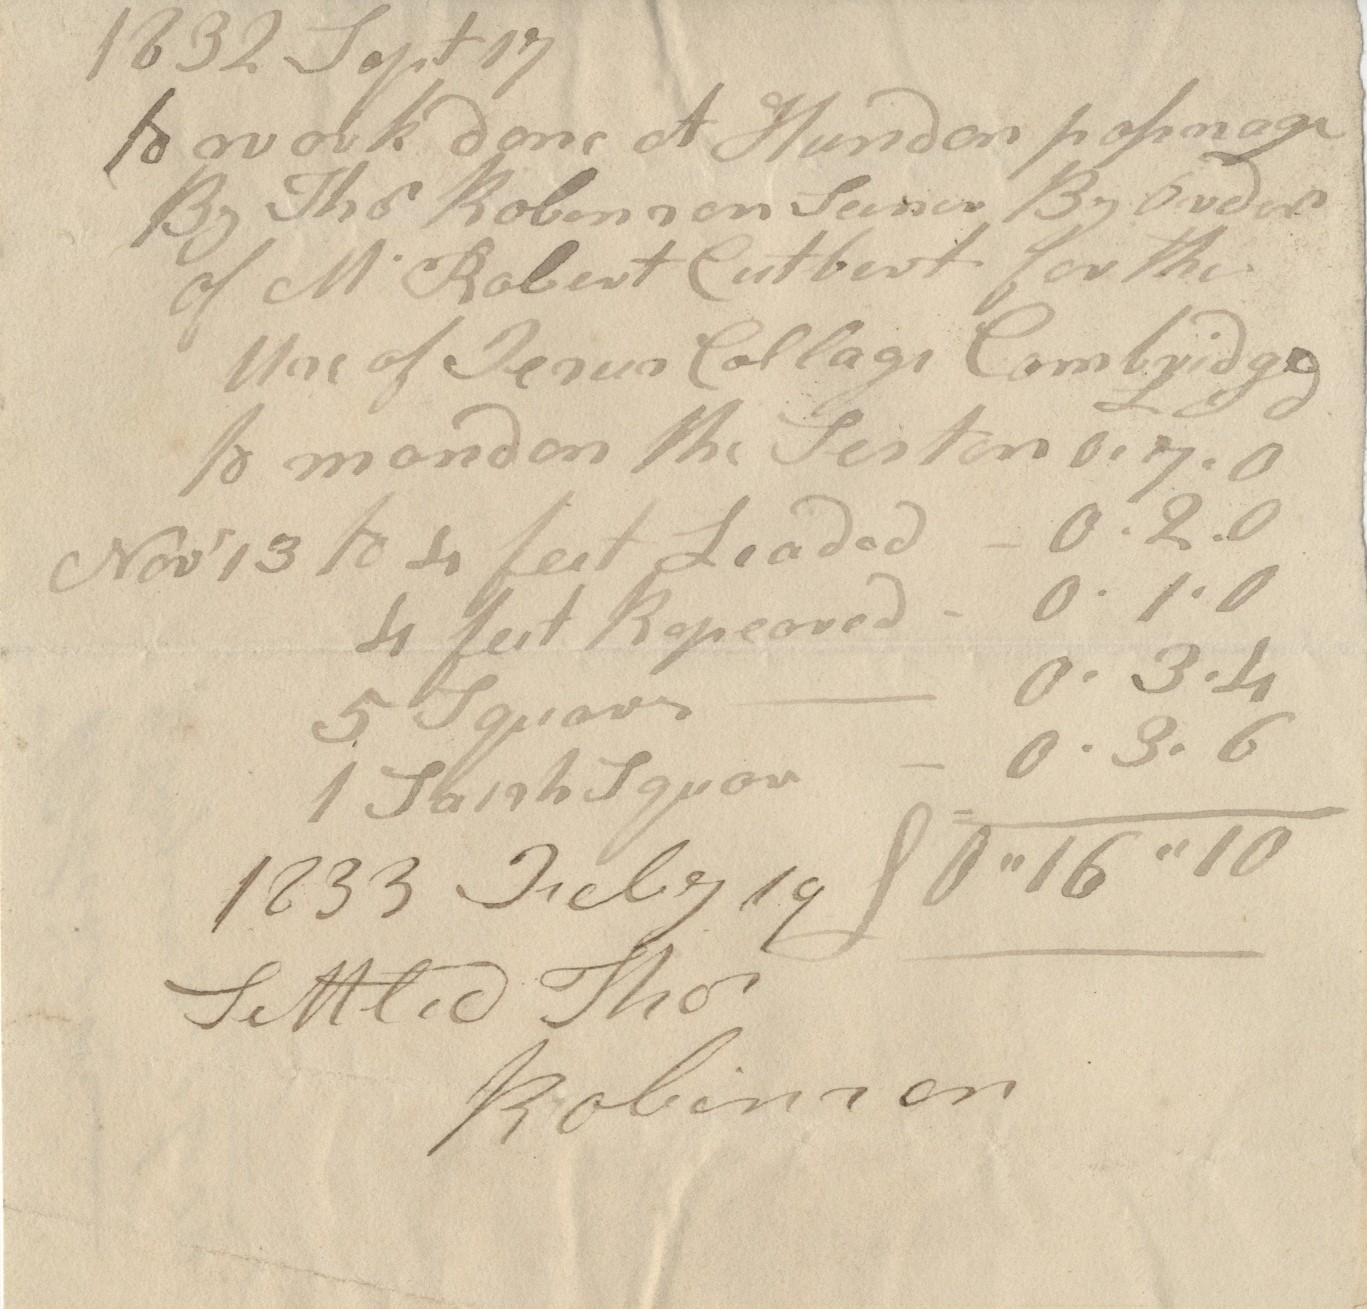 1832 Sept 17
to work done at Hundon pasnage
By Thos Robinson Seiner By Order
of Mr Robert Cutbert for the
Use of Jesus Collage Cambridge
£ s d
to mandon the Sestон 0.7.0
Nov 13 to 4 feet Leaded - 0.2.0
4 feet Repeared - 0.1.0
5 Squares — 0.3.4
1 Saish Squar - 0.3.6
1833 Feeby 19 £ 0"16"10
Settled Thos
Robinson